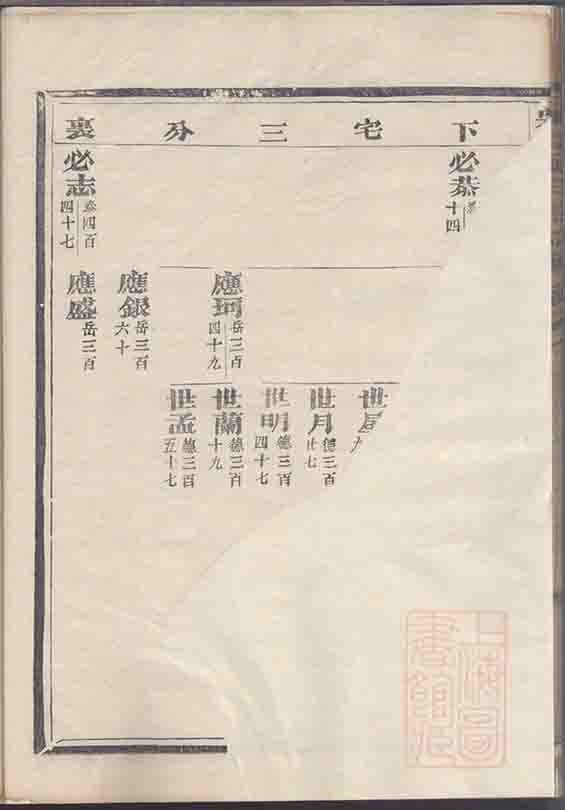 下宅三分裏
必恭
十四
必志
四百
四十七
應珂岳三百
四十九
應銀岳三百
六十
應盛岳三百
世月德三百
廿七
世明德三百
四十七
世蘭德三百
十九
世孟德三百
五十七
上海圖書館藏